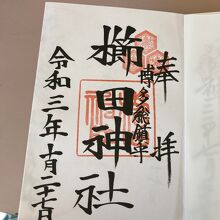 奉拝
博多総鎮守
櫛田神社
令和三年十月二十七日